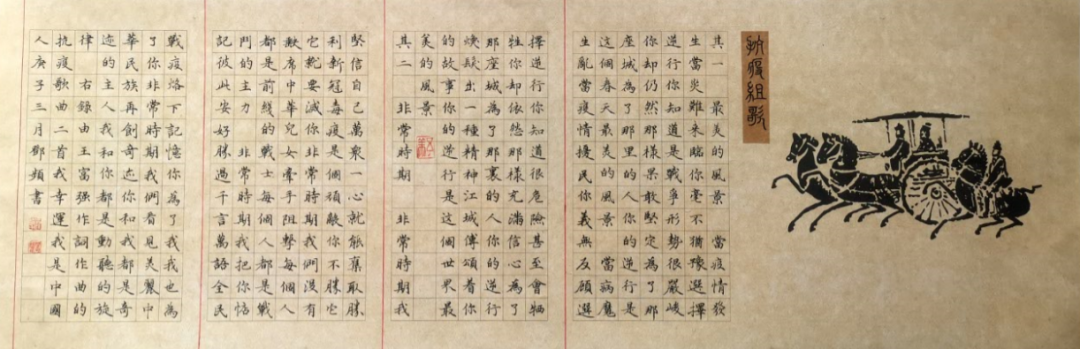 抗疫組歌
其一 最美的風景 當疫情發
生當炎難來臨你毫不猶豫選擇
逆行你知道是戰爭形勢很嚴峻
你却仍然那樣果敢堅定為了那
座城為了那里的人你的逆行是
這個春天最美的風景 當病魔
生亂當疫情擾民你義無反顧選
擇逆行你知道很危險甚至會牺
牲你却依然那樣充滿信心為了
那座城為了那裏的人你的逆行
煥發出一種精神江城傳頌着你
的故事你的逆行是這個世界最
美的風景
其二 非常時期 非常時期我
堅信自己萬衆一心就能奪取勝
利新冠毒疫是個頑敵你不勝它
它就要滅你非常時期我們没有
缺席中華兒女牽手阻擊每個人
都是前綫的戰士每個人都是戰
鬥的主力 非常時期我把你惦
記彼此安好勝過千言萬語全民
戰疫烙下記憶你為了我我也為
了你非常時期我們看見美麗中
華民族再創奇迹你和我都是奇
迹的主人我和你都是動聽的旋
律 右錄由王富强作詞作曲的
抗疫歌曲二首我幸運我是中國
人庚子三月鄧頻書